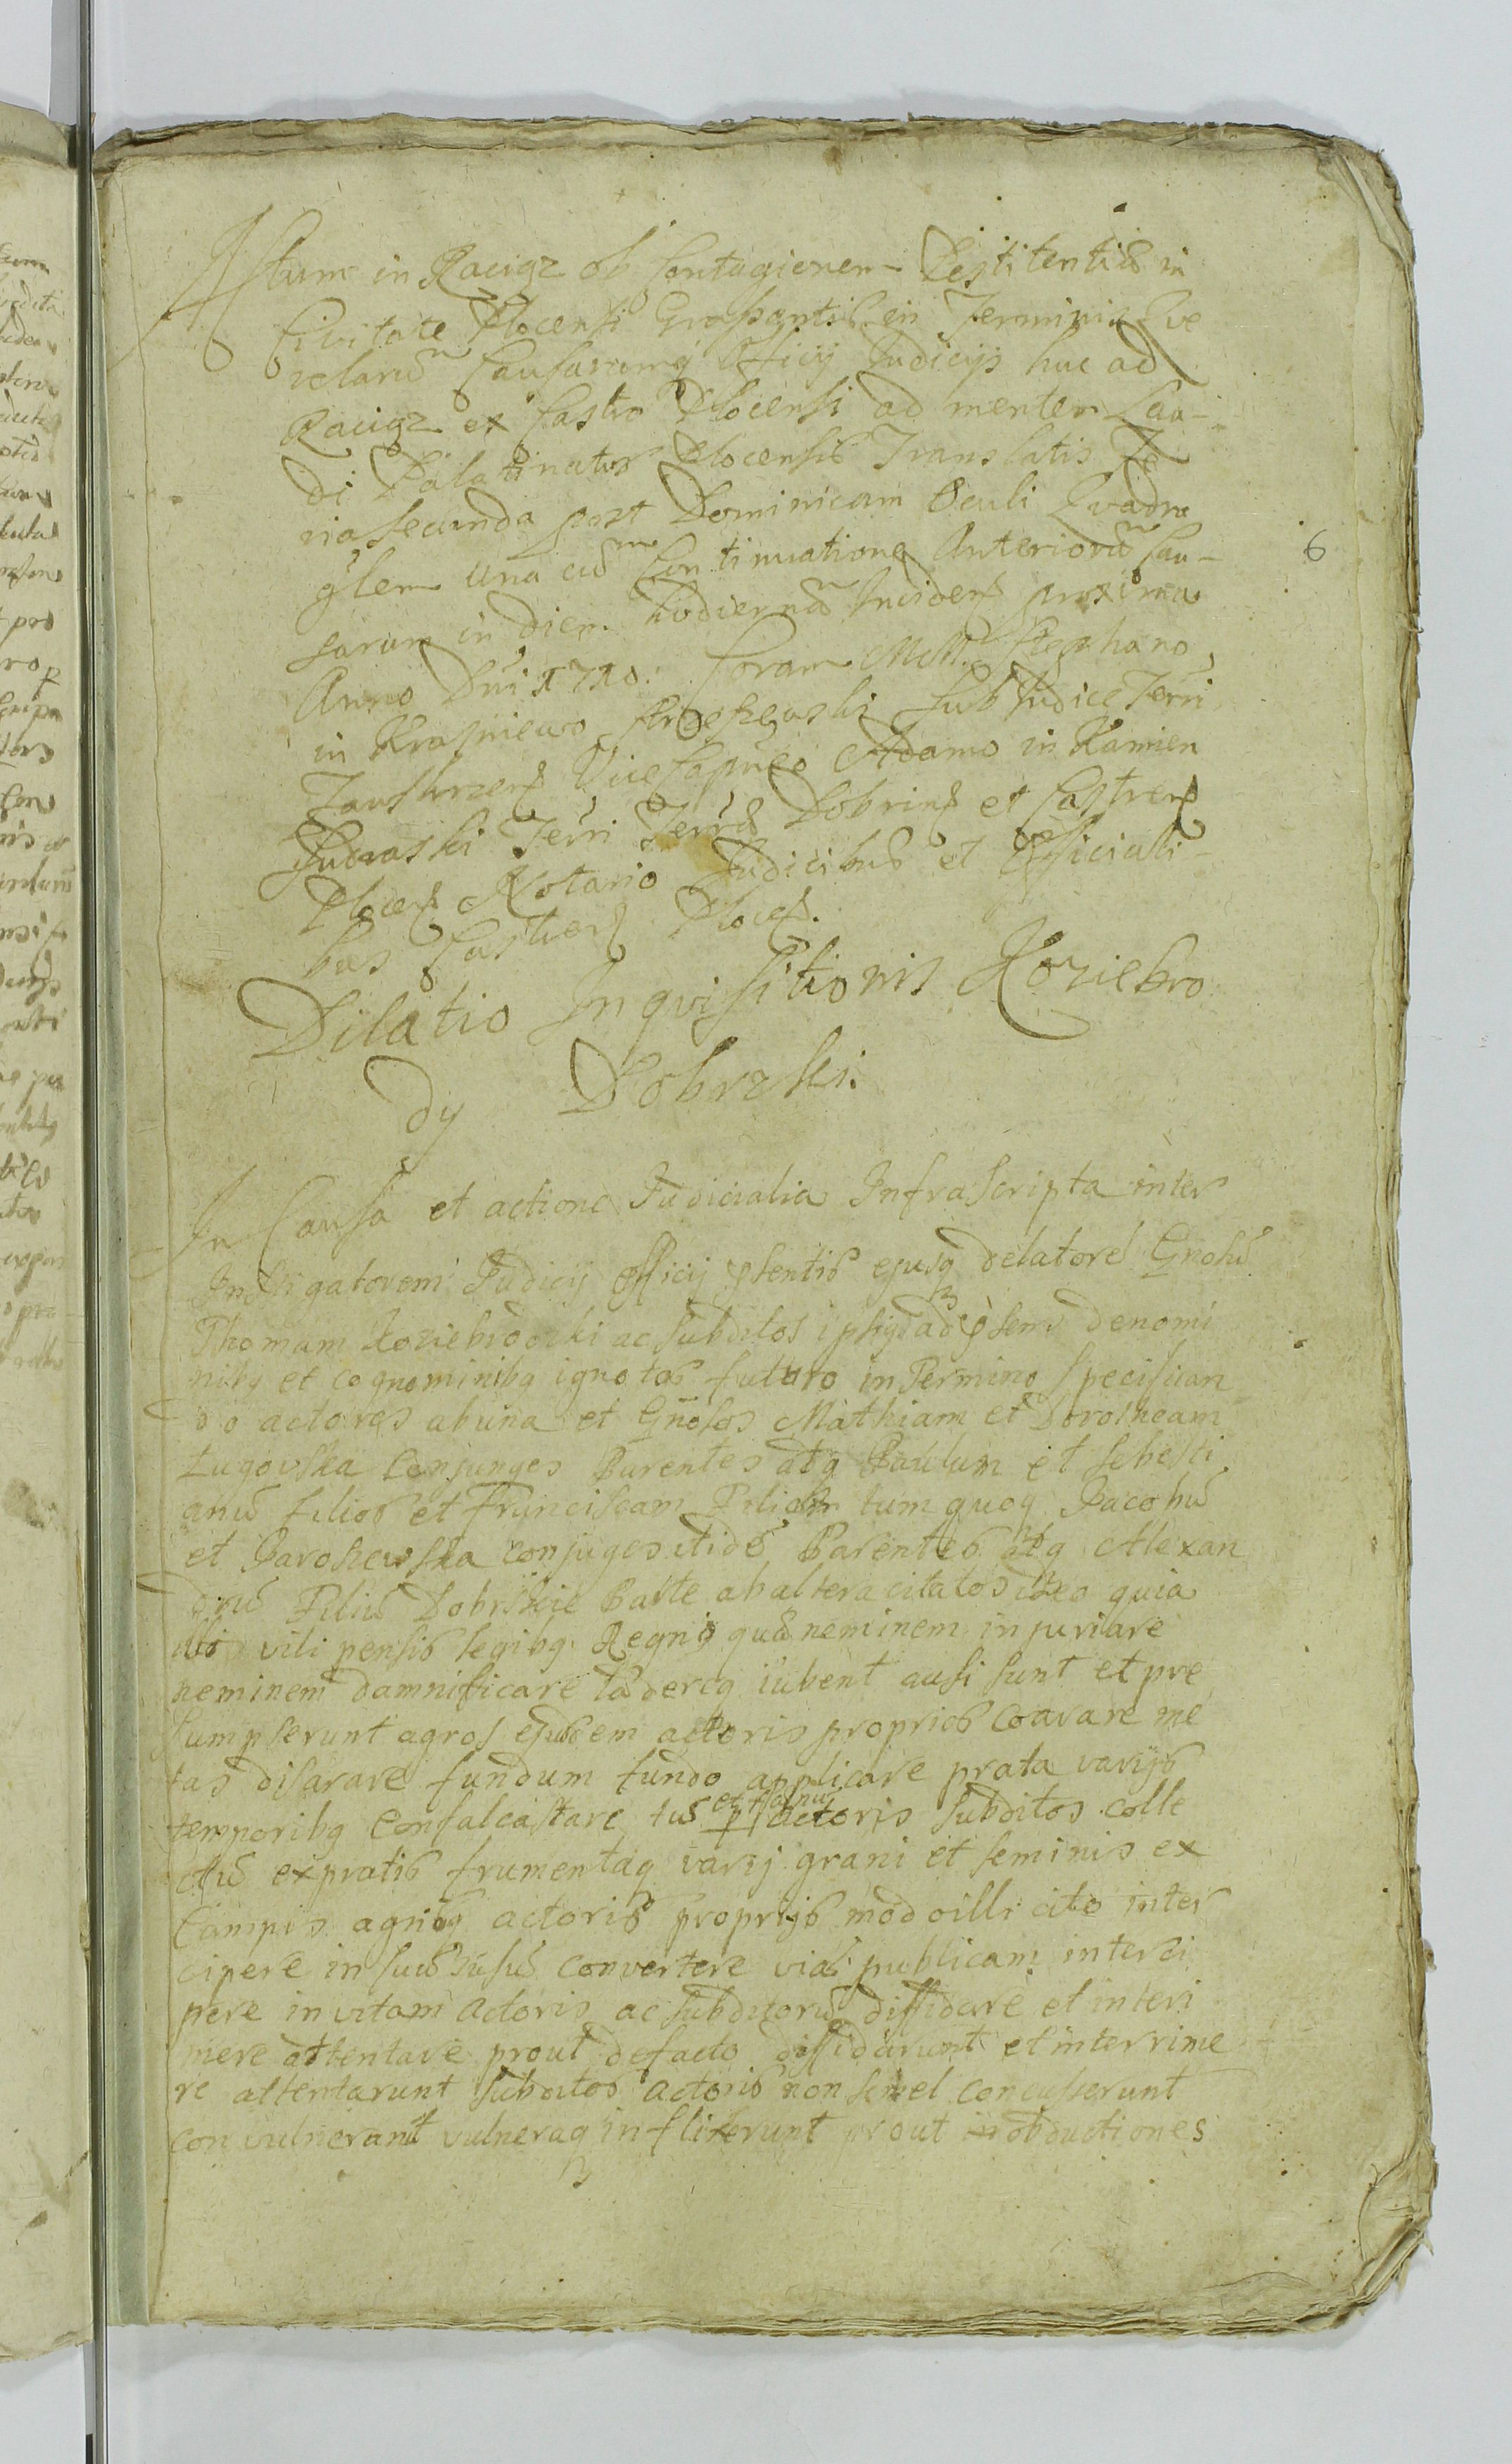 Actum in Raciąz ob Contagionem Pestilentis in
Civitate Plocensi Grassantis in Terminis Que
relarū Causarumq Officij Judicijs huc ad
Raciąz ex Castro Plocensi ad mentem Lau-
di Palatinatus Plocensis Translatis Fe
ria secunda post Dominicam Oculi Quadra
glem una cū Continuatione Anteriorū Cau-
sarum in diem hodiernā Incidens proxima
Anno Dni 1710. Coram Stephano
in Krasniewo Sub Judice Terri
Vice Adamo in Kamien
Terri Terrae Dobrins et Castrens
Plocens Notario Judicibus et Officiali-
bus Castren Plocens.
Dilatio Inqvisitionis Koziebro
dy Dobrzki.
In Causa et actione Judicialia Infrascripta inter
Instigatorem Judicij Officij psentis ejusq delatorē Gnosū
Thomam Koziebrodzki ac subditos ipsius ad psens denomi
nibq et cognominibq ignotos futuro in Termino specifican
do actores abuna et Gnosos Mathiam et Dorotheam
Lugovska Conjunges Parentes atq Paulum et Sebesti
anū filios et Franciscam Filiam tum quoq Jacobū
et Jaroszewska conjuges itidē Parentes atq Alexan
drū Filiū Dobrskie Parte abaltera citatos ideo quia
ibi vili pensis legibq Regni quā neminem injuriare
neminem damnificare laedereq iubent ausi sunt et pre
sumpserunt agros ejusdem actoris proprios coarare me
tas disarare fundum fundo applicare prata varijs
temporibq confalcastare tū et faenū p actoris subditos colle
ctū expratis frumentaq varij grani et seminis ex
Campis agribq actoris proprijs modo illicito inter
cipere in suos usus convertere viā publicam interci
pere in vitam actoris ac subditorū diffidare et interi
mere attentare prout defacto diffidarunt et interrime
re attentarunt subditos actoris non semel concusserunt
con vulnerant vulneraq inflixerunt prout in obductiones
6